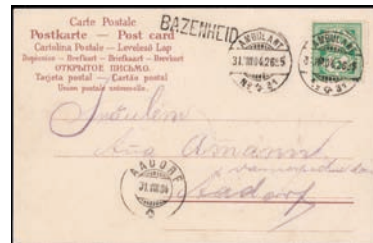 Carte Postale
Postkarte — Post card
Cartolina Postale — Levelező Lap
Dopisnice — Brefkort — Briefkaart — Brevkort
ОТКРЫТОЕ ПИСЬМО.
Tarjeta postal — Cartão postal
Union postale universelle.
BAZENHEID
AMBULANT
31.VIII.04
No 21
AMBULANT
No 21
Fräulein
Amann
Aadorf
AADORF
31.VIII.04